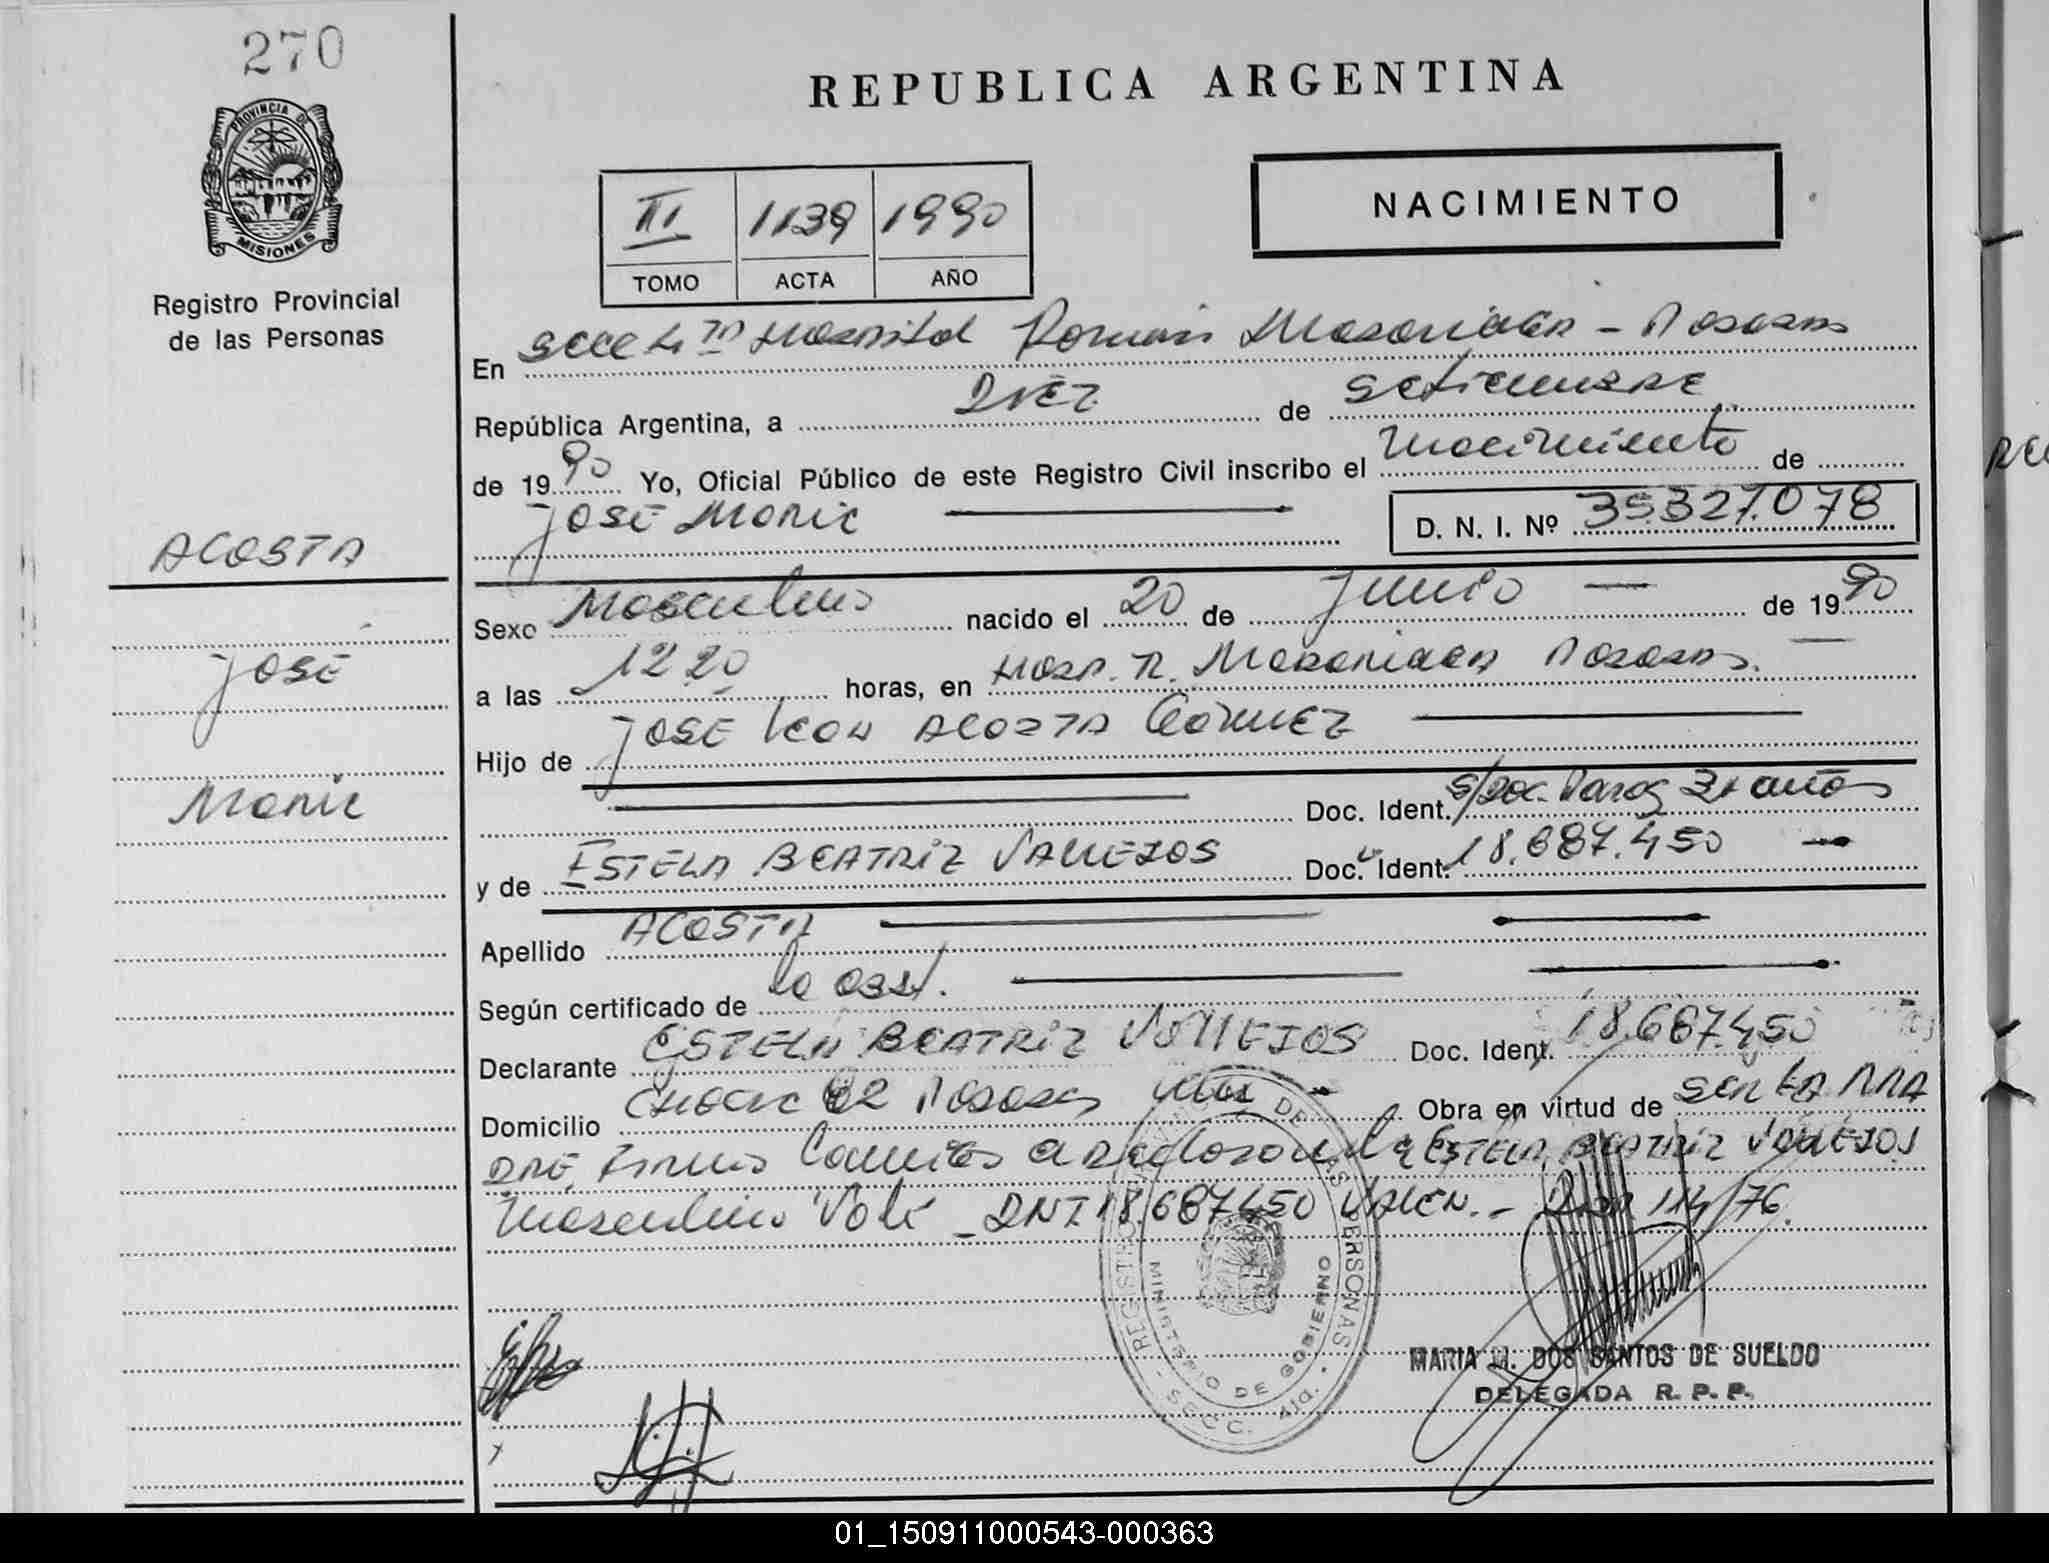 270
REPUBLICA ARGENTINA
PROVINCIA DE
MISIONES
Registro Provincial
de las Personas
III 1139 1990
TOMO ACTA AÑO
NACIMIENTO
En Secc 4ta Hospital Ramon Madariaga - Posadas
República Argentina, a Diez de Setiembre
de 1990 Yo, Oficial Público de este Registro Civil inscribo el nacimiento de
JOSÉ MARIE
D. N. I. Nº 35.327.078
ACOSTA
JOSÉ
MARIE
Sexo Masculino nacido el 20 de Junio de 1990
a las 12 20 horas, en Hosp. R. Madariaga Posadas.
Hijo de JOSE ACOSTA GOMEZ
Doc. Ident. S/Doc. Parag 31 años
y de ESTELA BEATRIZ VALLEJOS Doc. Ident. 18.687.450
Apellido ACOSTA
Según certificado de la obst.
Declarante ESTELA BEATRIZ VALLEJOS Doc. Ident. 18.687.450
Domicilio 82 Posadas Mnes Obra en virtud de ser la MADRE
Firma ESTELA BEATRIZ VALLEJOS
masculino Vale - DNI 18.687.450 VALEN.- 114/76.
REGISTRO DE LAS PERSONAS
MINISTERIO DE GOBIERNO
SECC. 4ta.
MARIA M. DOS SANTOS DE SUELDO
DELEGADA R. P. P.
01_150911000543-000363